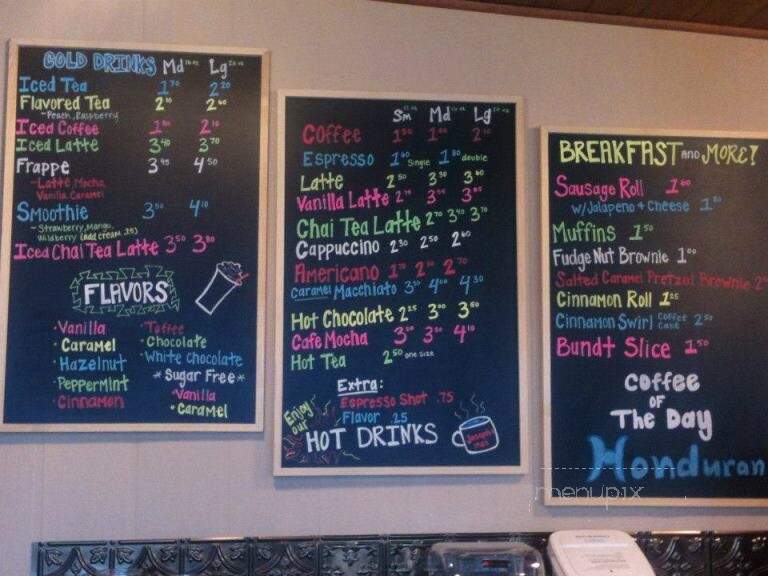 COLD DRINKS Md Lg
Iced Tea 1 70 2 20
Flavored Tea 2 2 60
- Peach, Raspberry
Iced Coffee 1 2 10
Iced Latte 3 40 3 70
Frappe 3 95 4 50
- Latte, Mocha,
Vanilla, Caramel
Smoothie 3 50 4 10
- Strawberry, Mango,
Wildberry (add cream .25)
Iced Chai Tea Latte 3 50 3 80
FLAVORS
· Vanilla
· Caramel
· Hazelnut
· Peppermint
· Cinnamon
· Toffee
· Chocolate
· White Chocolate
* Sugar Free *
· Vanilla
· Caramel
Sm Md Lg
Coffee 1 50 1 2
Espresso 1 60 Single 1 80 double
Latte 2 50 3 30 3 60
Vanilla Latte 2 3 3
Chai Tea Latte 2 70 3 40 3 70
Cappuccino 2 30 2 50 2 60
Americano 1 2 2 70
Caramel Macchiato 3 4 4 30
Hot Chocolate 2 25 3 00 3 50
Cafe Mocha 3 3 4 10
Hot Tea 2 50 one size
Extra:
Espresso Shot .75
Flavor .25
Enjoy our
HOT DRINKS
Joseph's
BREAKFAST and MORE!
Sausage Roll 1 60
w/Jalapeno & Cheese 1 80
Muffins 1 50
Fudge Nut Brownie 1 00
Salted Caramel Pretzel Brownie 2
Cinnamon Roll 1 25
Cinnamon Swirl Coffee Cake 2 50
Bundt Slice 1 50
Coffee
OF
The Day
Honduran
menupix